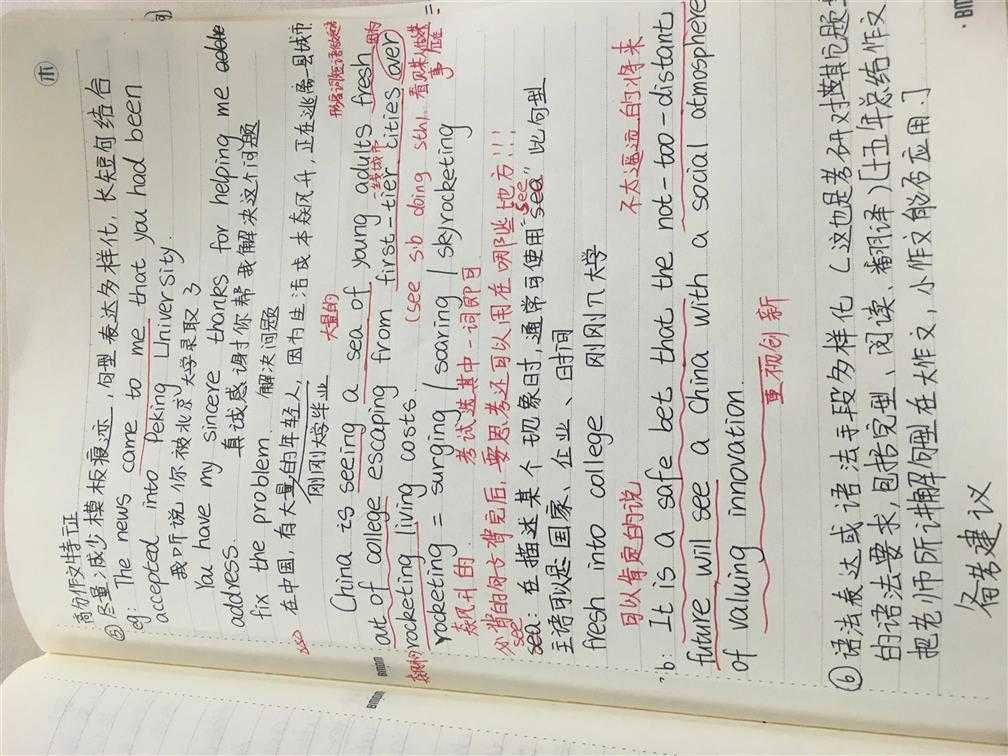 高分作文特征
⑤ 尽量减少模板痕迹,句型表达多样化,长短句结合
eg: The news came to me that you had been
accepted into Peking University.
我听说你被北京大学录取了
You have my sincere thanks for helping me
address. 真诚感谢你帮我解决这个问题
fix the problem 解决问题
在中国,有大量的年轻人,因为生活成本飙升,正在逃离一线城市
刚刚大学毕业
大量的
China is seeing a sea of young adults fresh
一线城市
out of college escaping from first-tier cities over
rocketing living costs. (see s.b doing sth. 看见某人做某
事 正在
rocketing = surging / soaring / skyrocketing =
飙升的 考试选其中一词即可
分析的网句背完后,要思考还可以用在哪些地方!!!
see see
sea: 在描述某个现象时,通常可使用"sea"此句型
主语可以是国家、企业、时间
fresh into college 刚刚入大学
可以肯定的说 不太遥远的将来
b: It is a safe bet that the not-too-distant
future will see a China with a social atmosphere
of valuing innovation.
重视创新
⑥ 语法表达或语法手段多样化 (这也是考研对其他题
的语法要求,包括完型、阅读、翻译) [十五年总结作文
把老师所讲解句型在大作文,小作文能否应用.]
备考建议
BIMON